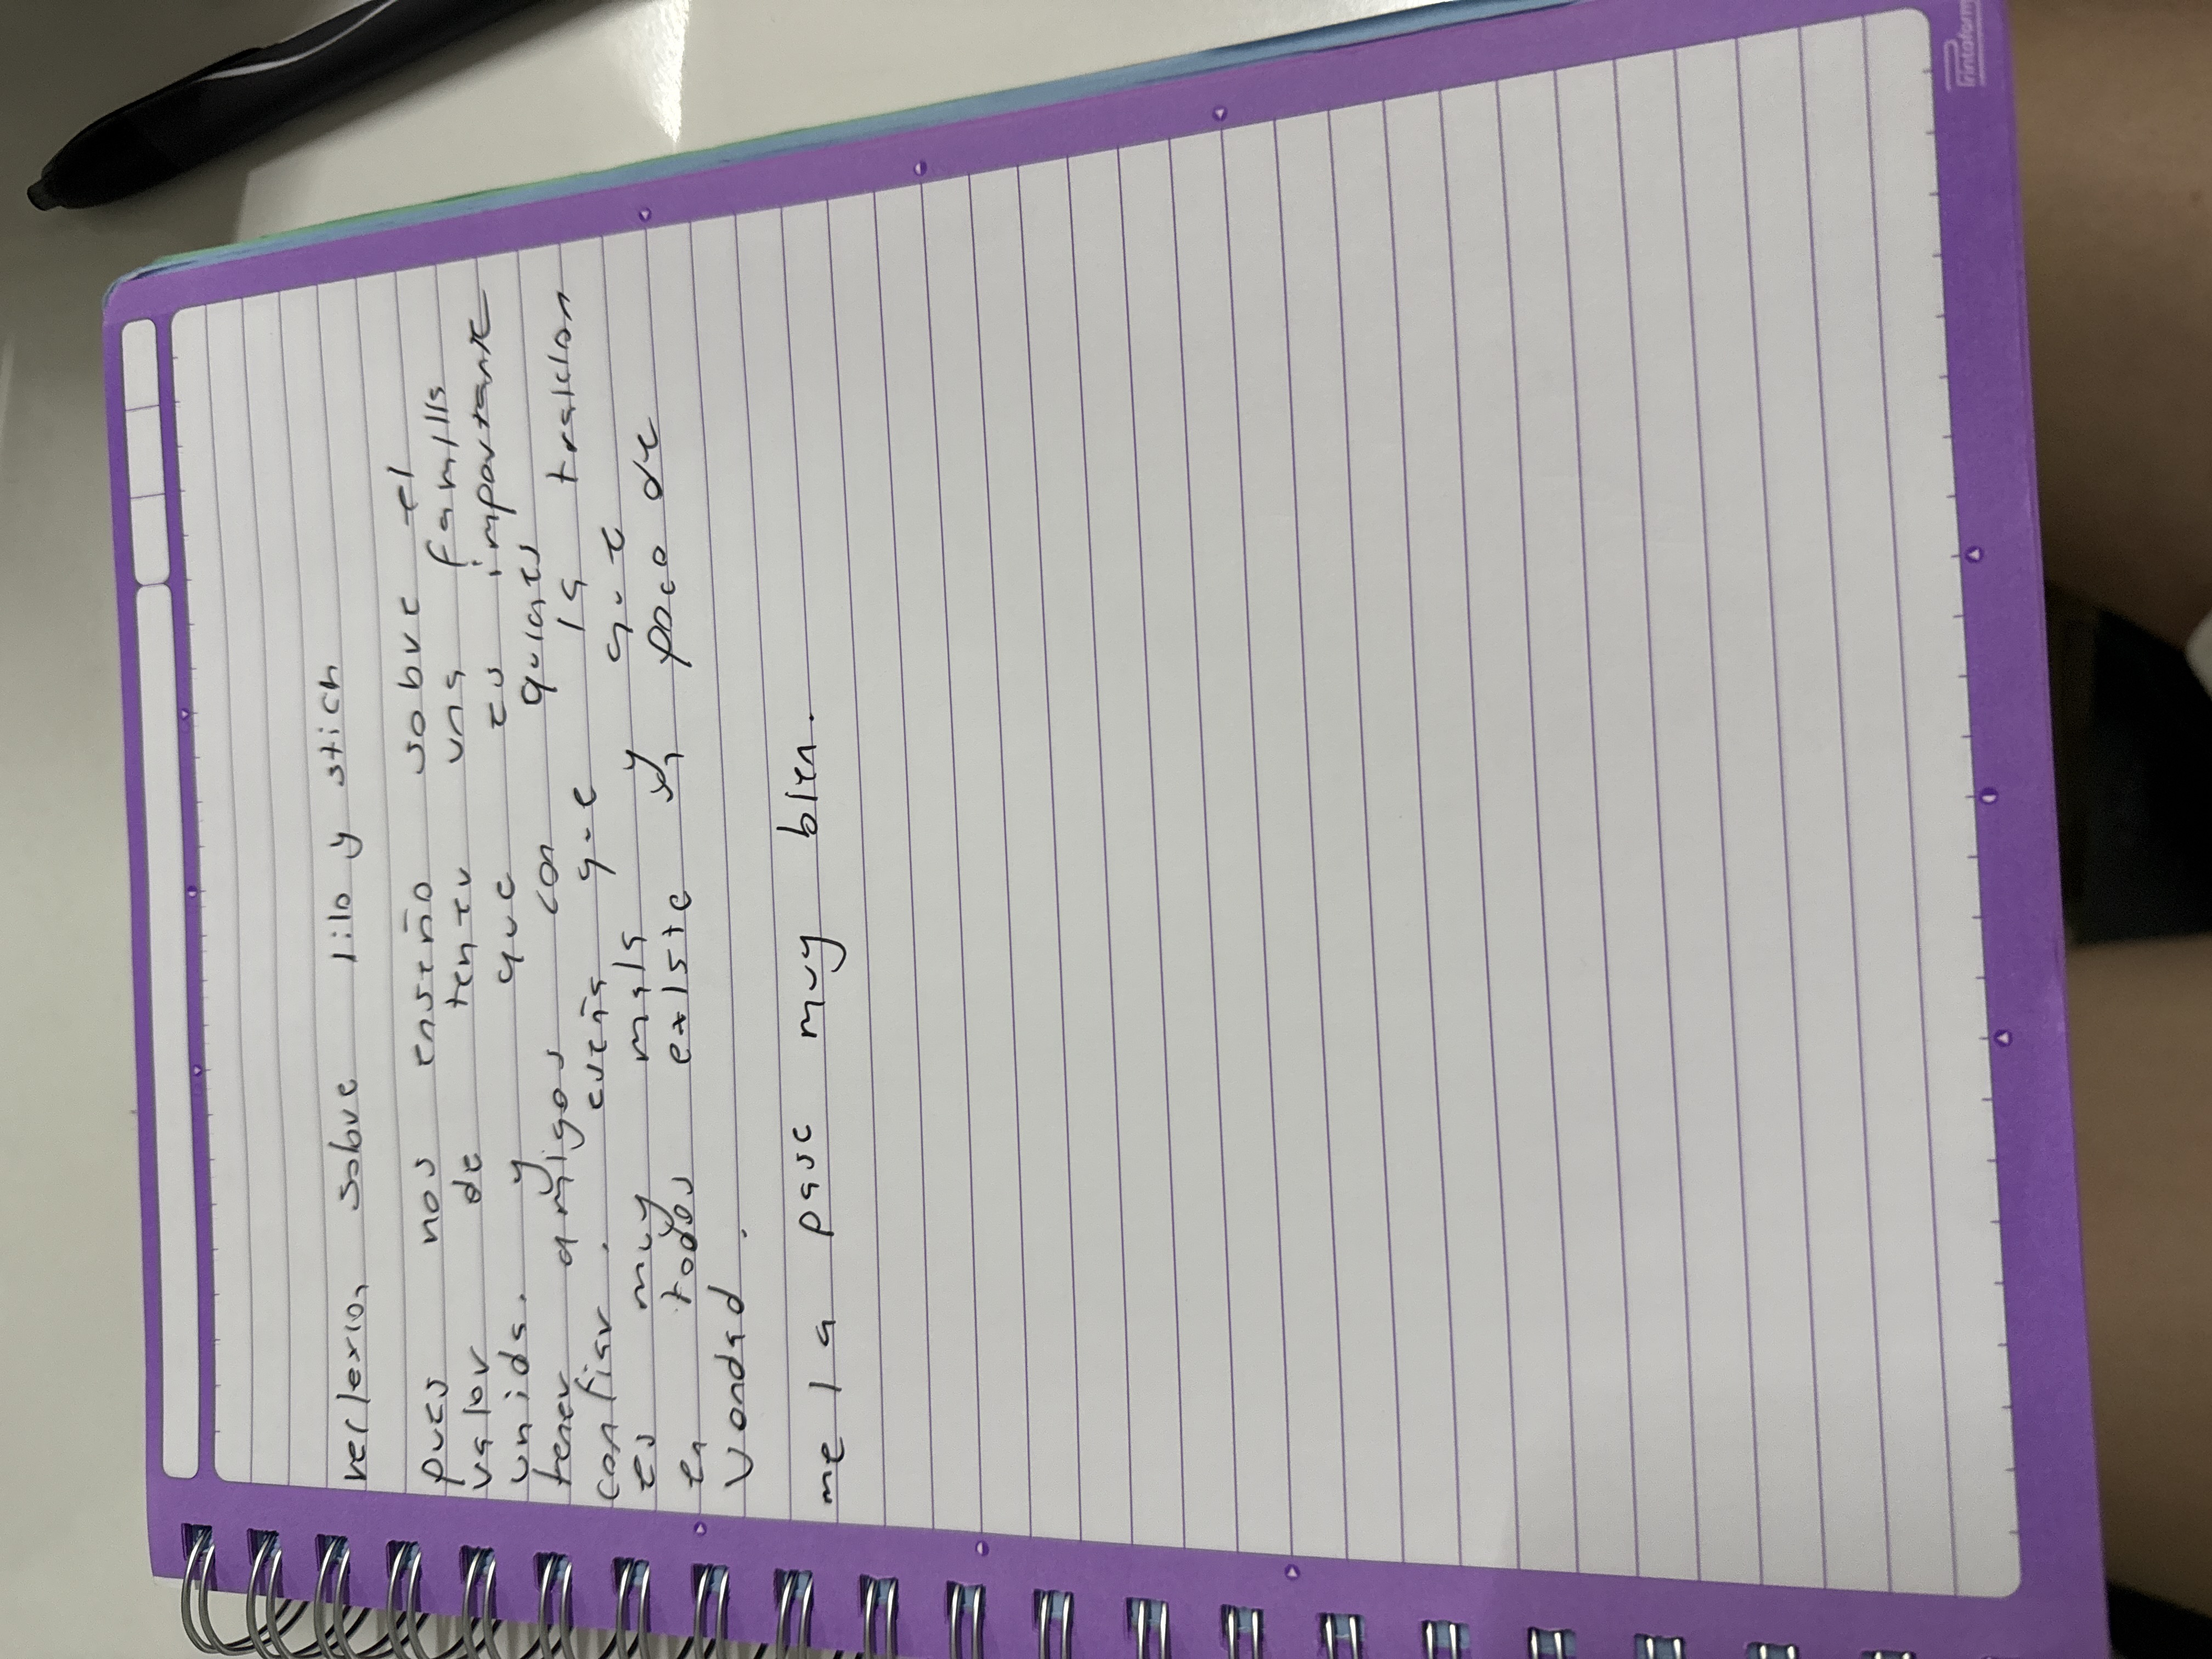 reflexion sobre lilo y stich
pues nos enseño sobre el
valor de tener una familia
unida. y que es importante
tener amigos con quienes
confiar. eseña que la traicion
es muy mala y que
en todos existe un poco de
vondad.
me la pase muy bien.
Printaform